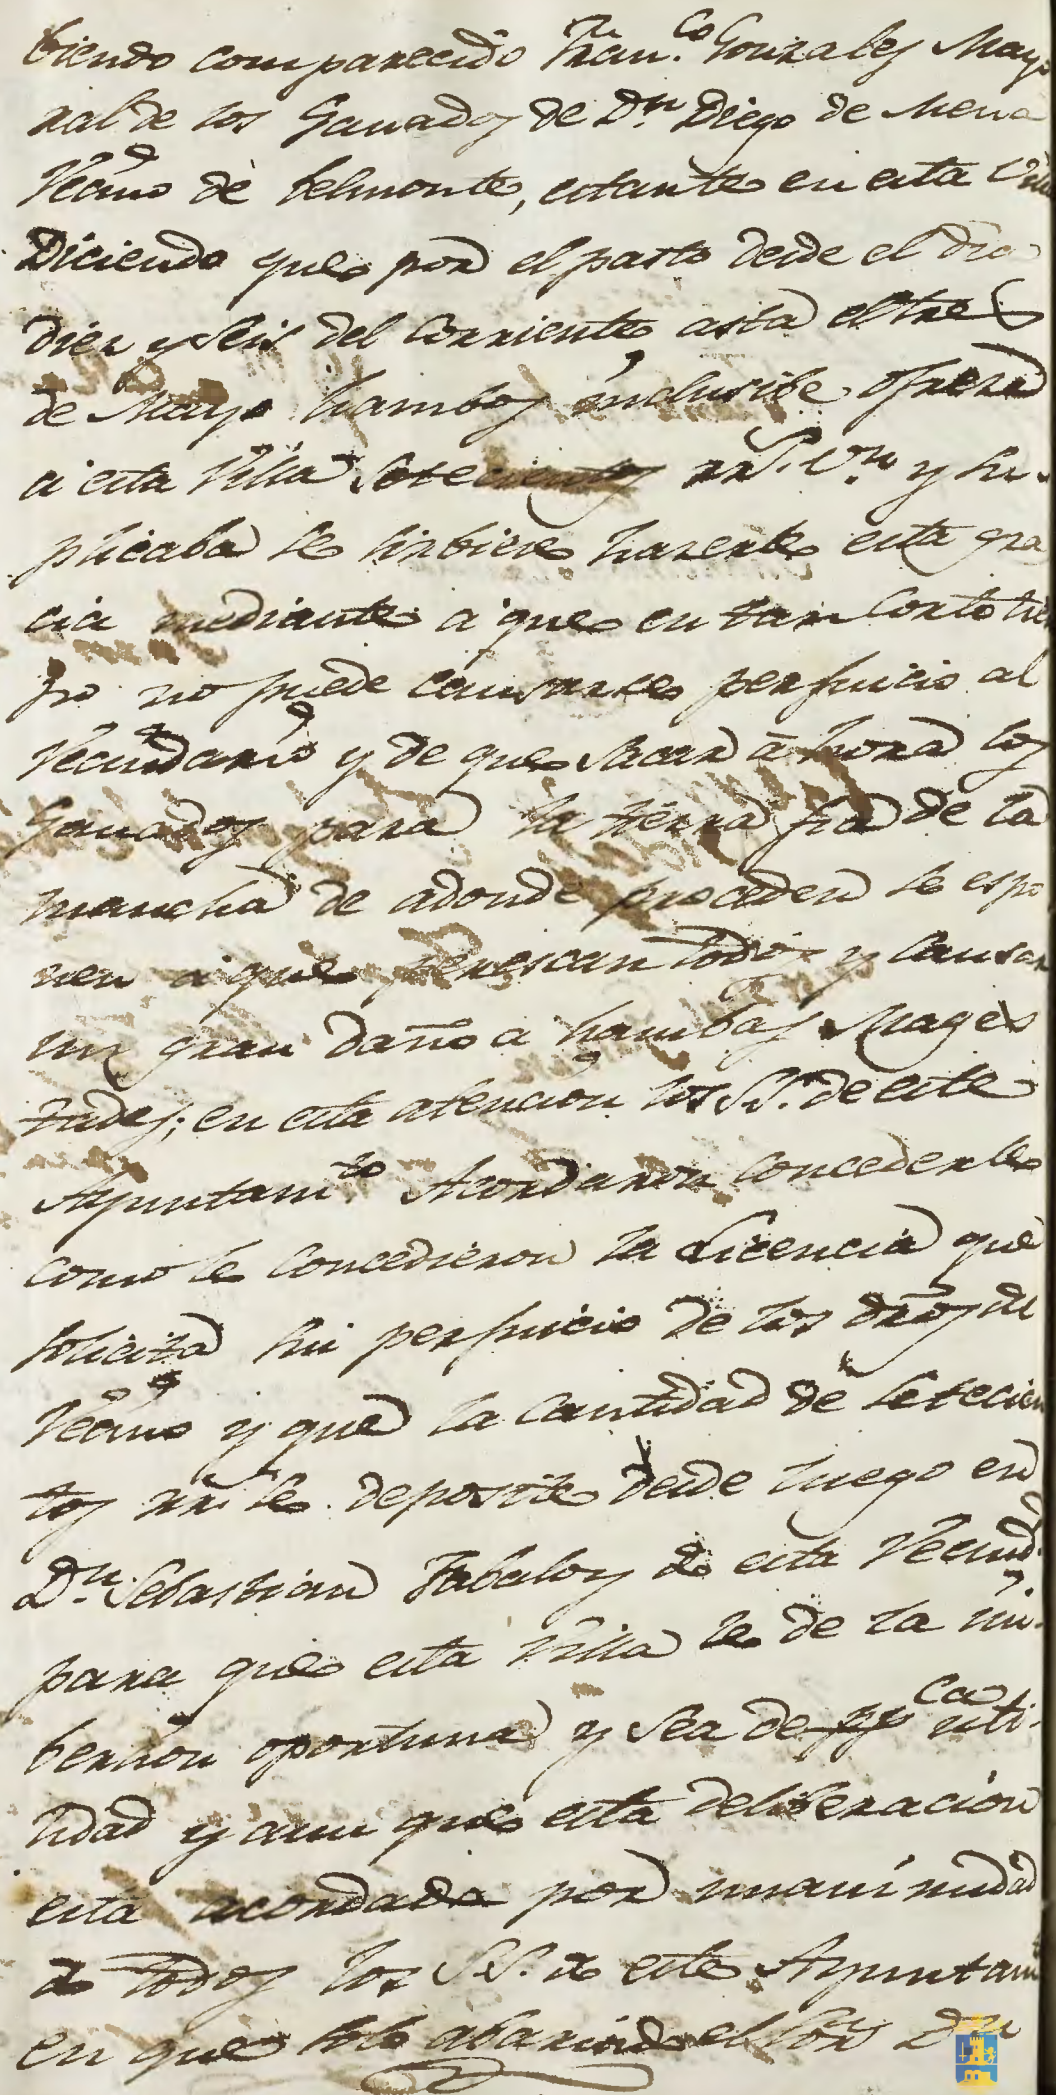 biendo comparecido Fran.co Gonzales Mayo
ral de los Ganados de Dn. Diego de Mena
Vecino de belmonte, estante en esta Villa
Diciendo que por el pasto desde el dia
diez y seis del Corriente asta el tres
de Mayo hambos inclusibe ofreze
a esta Villa Setecientos rrs. Vn. y su
plicaba se sirbiese hazerle esta gra
cia mediante a que en tan Corto tiem
po no puede causarse perjuicio al
Vecindario y de que sacar ahora los
Ganados para la tierra fria de la
mancha de adonde proceden se espo
nen a que perescan todos y causar
un gran daño a hambas Mages
tades; en esta atencion los SS. de este
Ayuntam.to Acordaron Concederle
como le Concedieron la Licencia que
solicita sin perjuicio de los dros del
Vecino y que la Cantidad de Setecien
tos rrs se deposite desde luego en
Dn. Sebastian Tabaloy de esta Vecind.
para que esta Villa le de la im
bersion oportuna y sea de ppca uti
lidad y aun que esta deliberacion
esta acordada por unanimidad
de todos los SS. de este Ayuntam
en que solo el Sor Dn